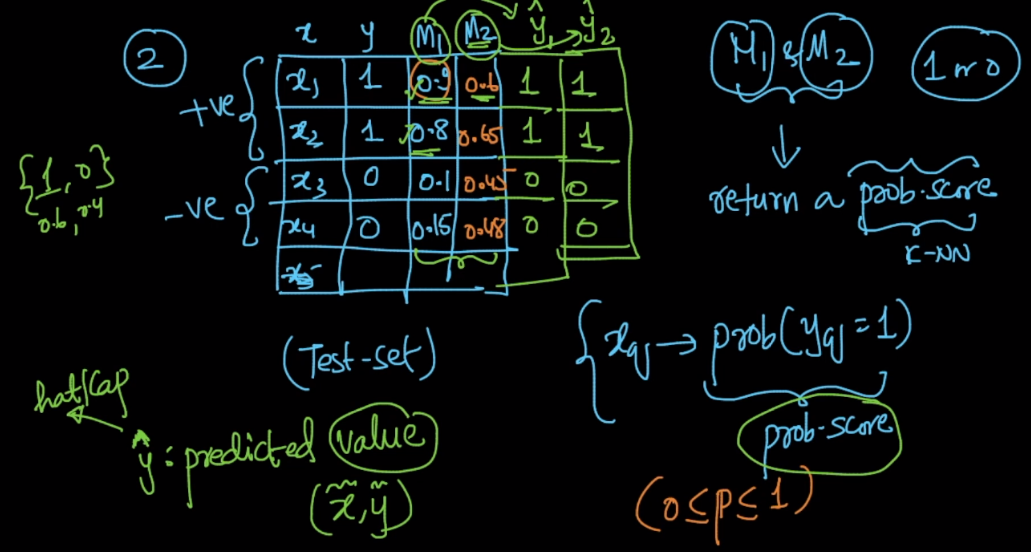 2
x y M₁ M₂ ŷ₁ ŷ₂
+ve
x₁ 1 0.9 0.6 1 1
x₂ 1 0.8 0.65 1 1
-ve
x₃ 0 0.1 0.45 0 0
x₄ 0 0.15 0.48 0 0
x₅
{1, 0}
0.6, 0.4
(Test-set)
hat/cap
ŷ: predicted value
(x̃, ỹ)
M₁ & M₂
1 or 0
return a prob-score
K-NN
{ x_q → prob(y_q = 1)
prob-score
(0 ≤ p ≤ 1)